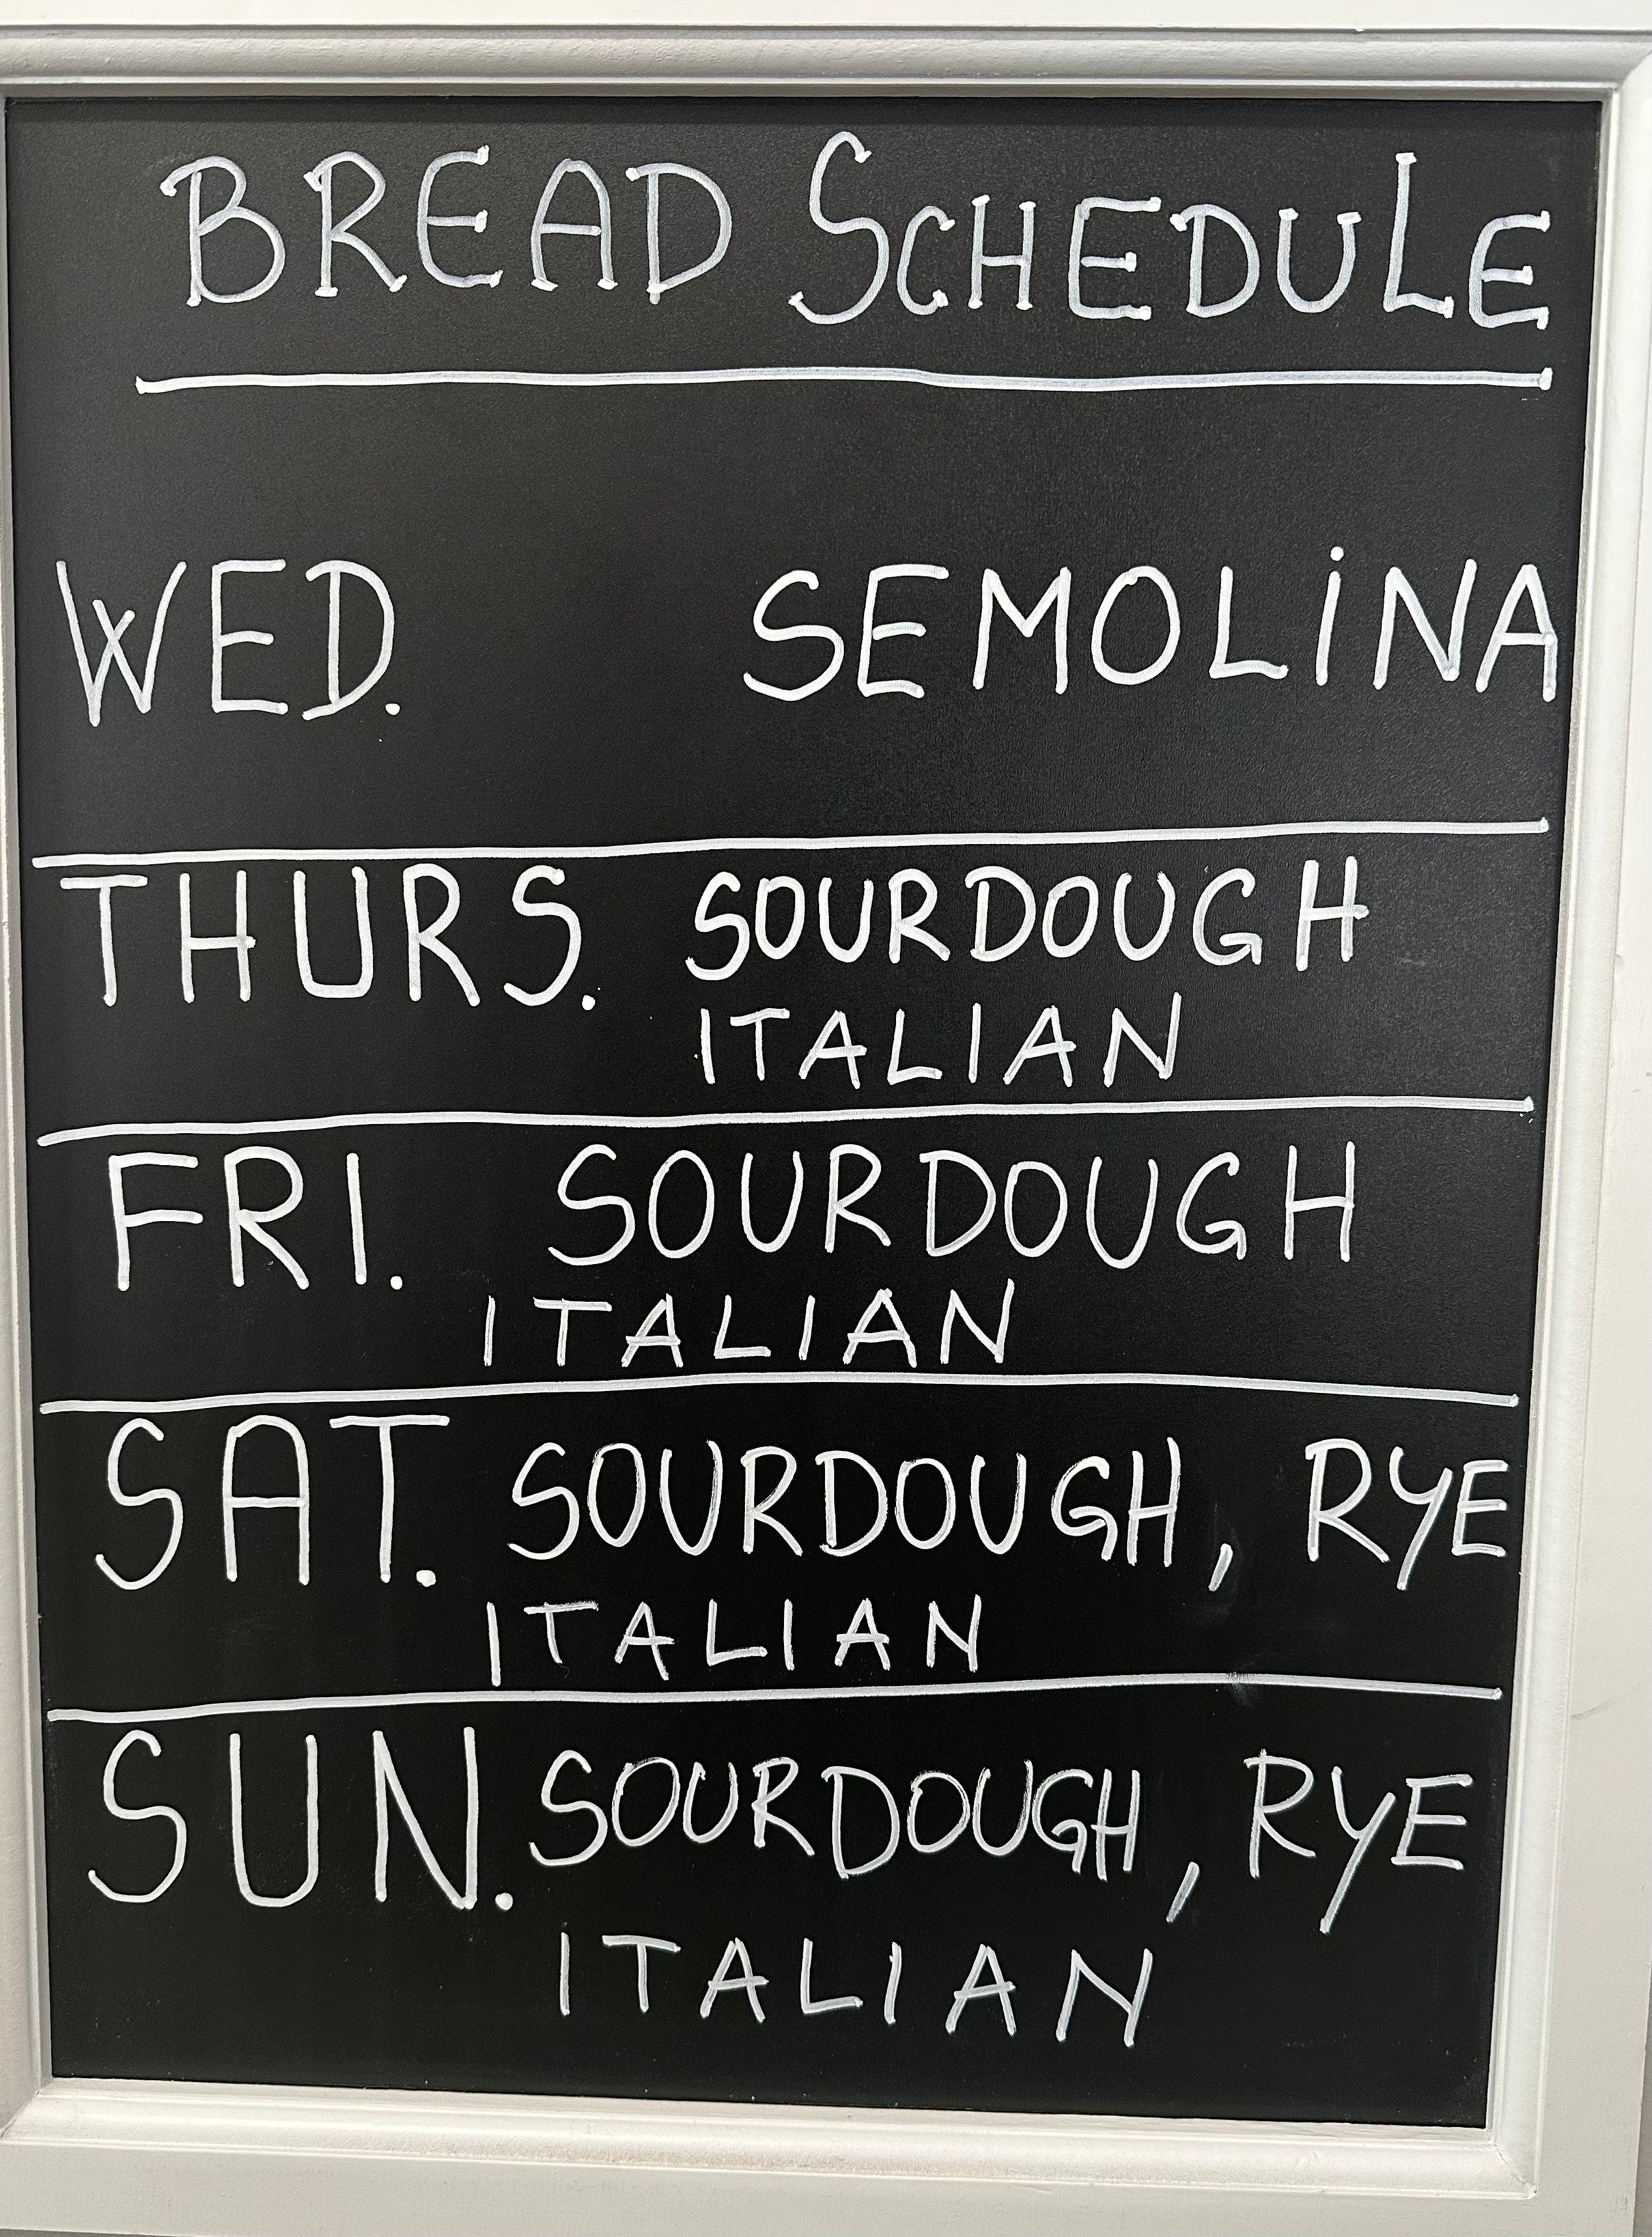 BREAD SCHEDULE
WED. SEMOLiNA
THURS. SOURDOUGH
ITALIAN
FRI. SOURDOUGH
ITALIAN
SAT. SOURDOUGH, RYE
ITALIAN
SUN. SOURDOUGH, RYE
ITALIAN